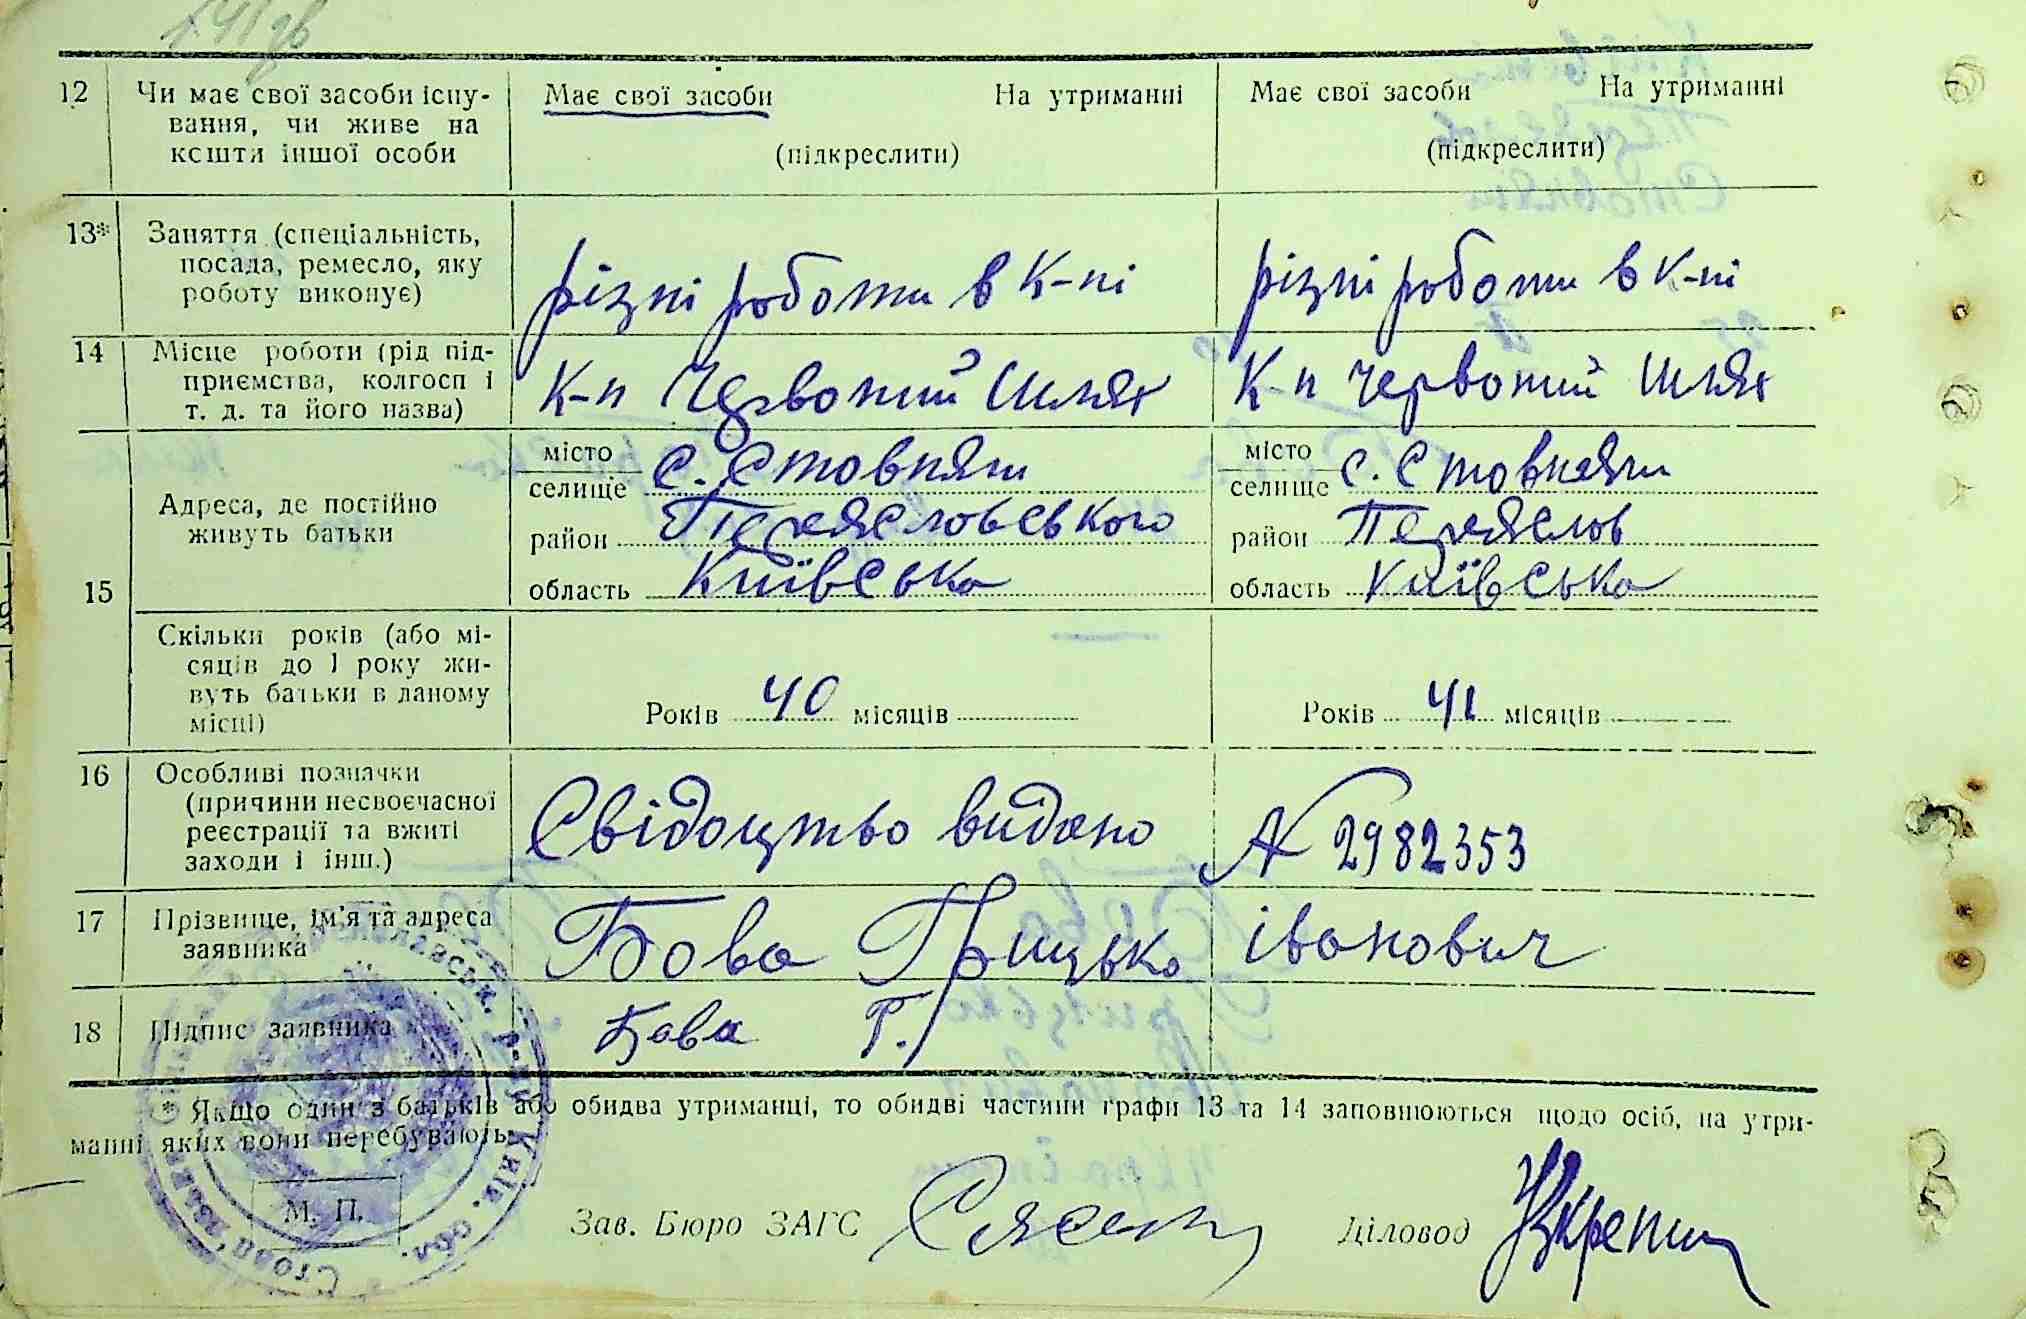 12 Чи має свої засоби існу-
вання, чи живе на
кошти іншої особи
Має свої засоби На утриманні
(підкреслити)
Має свої засоби На утриманні
(підкреслити)
13* Заняття (спеціальність,
посада, ремесло, яку
роботу виконує)
різні роботи в к-пі
різні роботи в к-пі
14 Місце роботи (рід під-
приємства, колгосп і
т. д. та його назва)
К-п Червоний Шлях
К-п Червоний Шлях
15
Адреса, де постійно
живуть батьки
місто
селище с. Стовпяги
район Переясловського
область Київська
місто
селище с. Стовпяги
район Переяслов
область Київська
Скільки років (або мі-
сяців до 1 року жи-
вуть батьки в даному
місці)
Років 40 місяців
Років 41 місяців
16 Особливі позначки
(причини несвоєчасної
реєстрації та вжиті
заходи і інш.)
Свідоцтво видано № 2982353
17 Прізвище, ім'я та адреса
заявника
Бова Грицько Іванович
18 Підпис заявника
Бова Г.
* Якщо один з батьків або обидва утриманці, то обидві частини графи 13 та 14 заповнюються щодо осіб, на утри-
манні яких вони перебувають.
М. П.
Зав. Бюро ЗАГС
Діловод